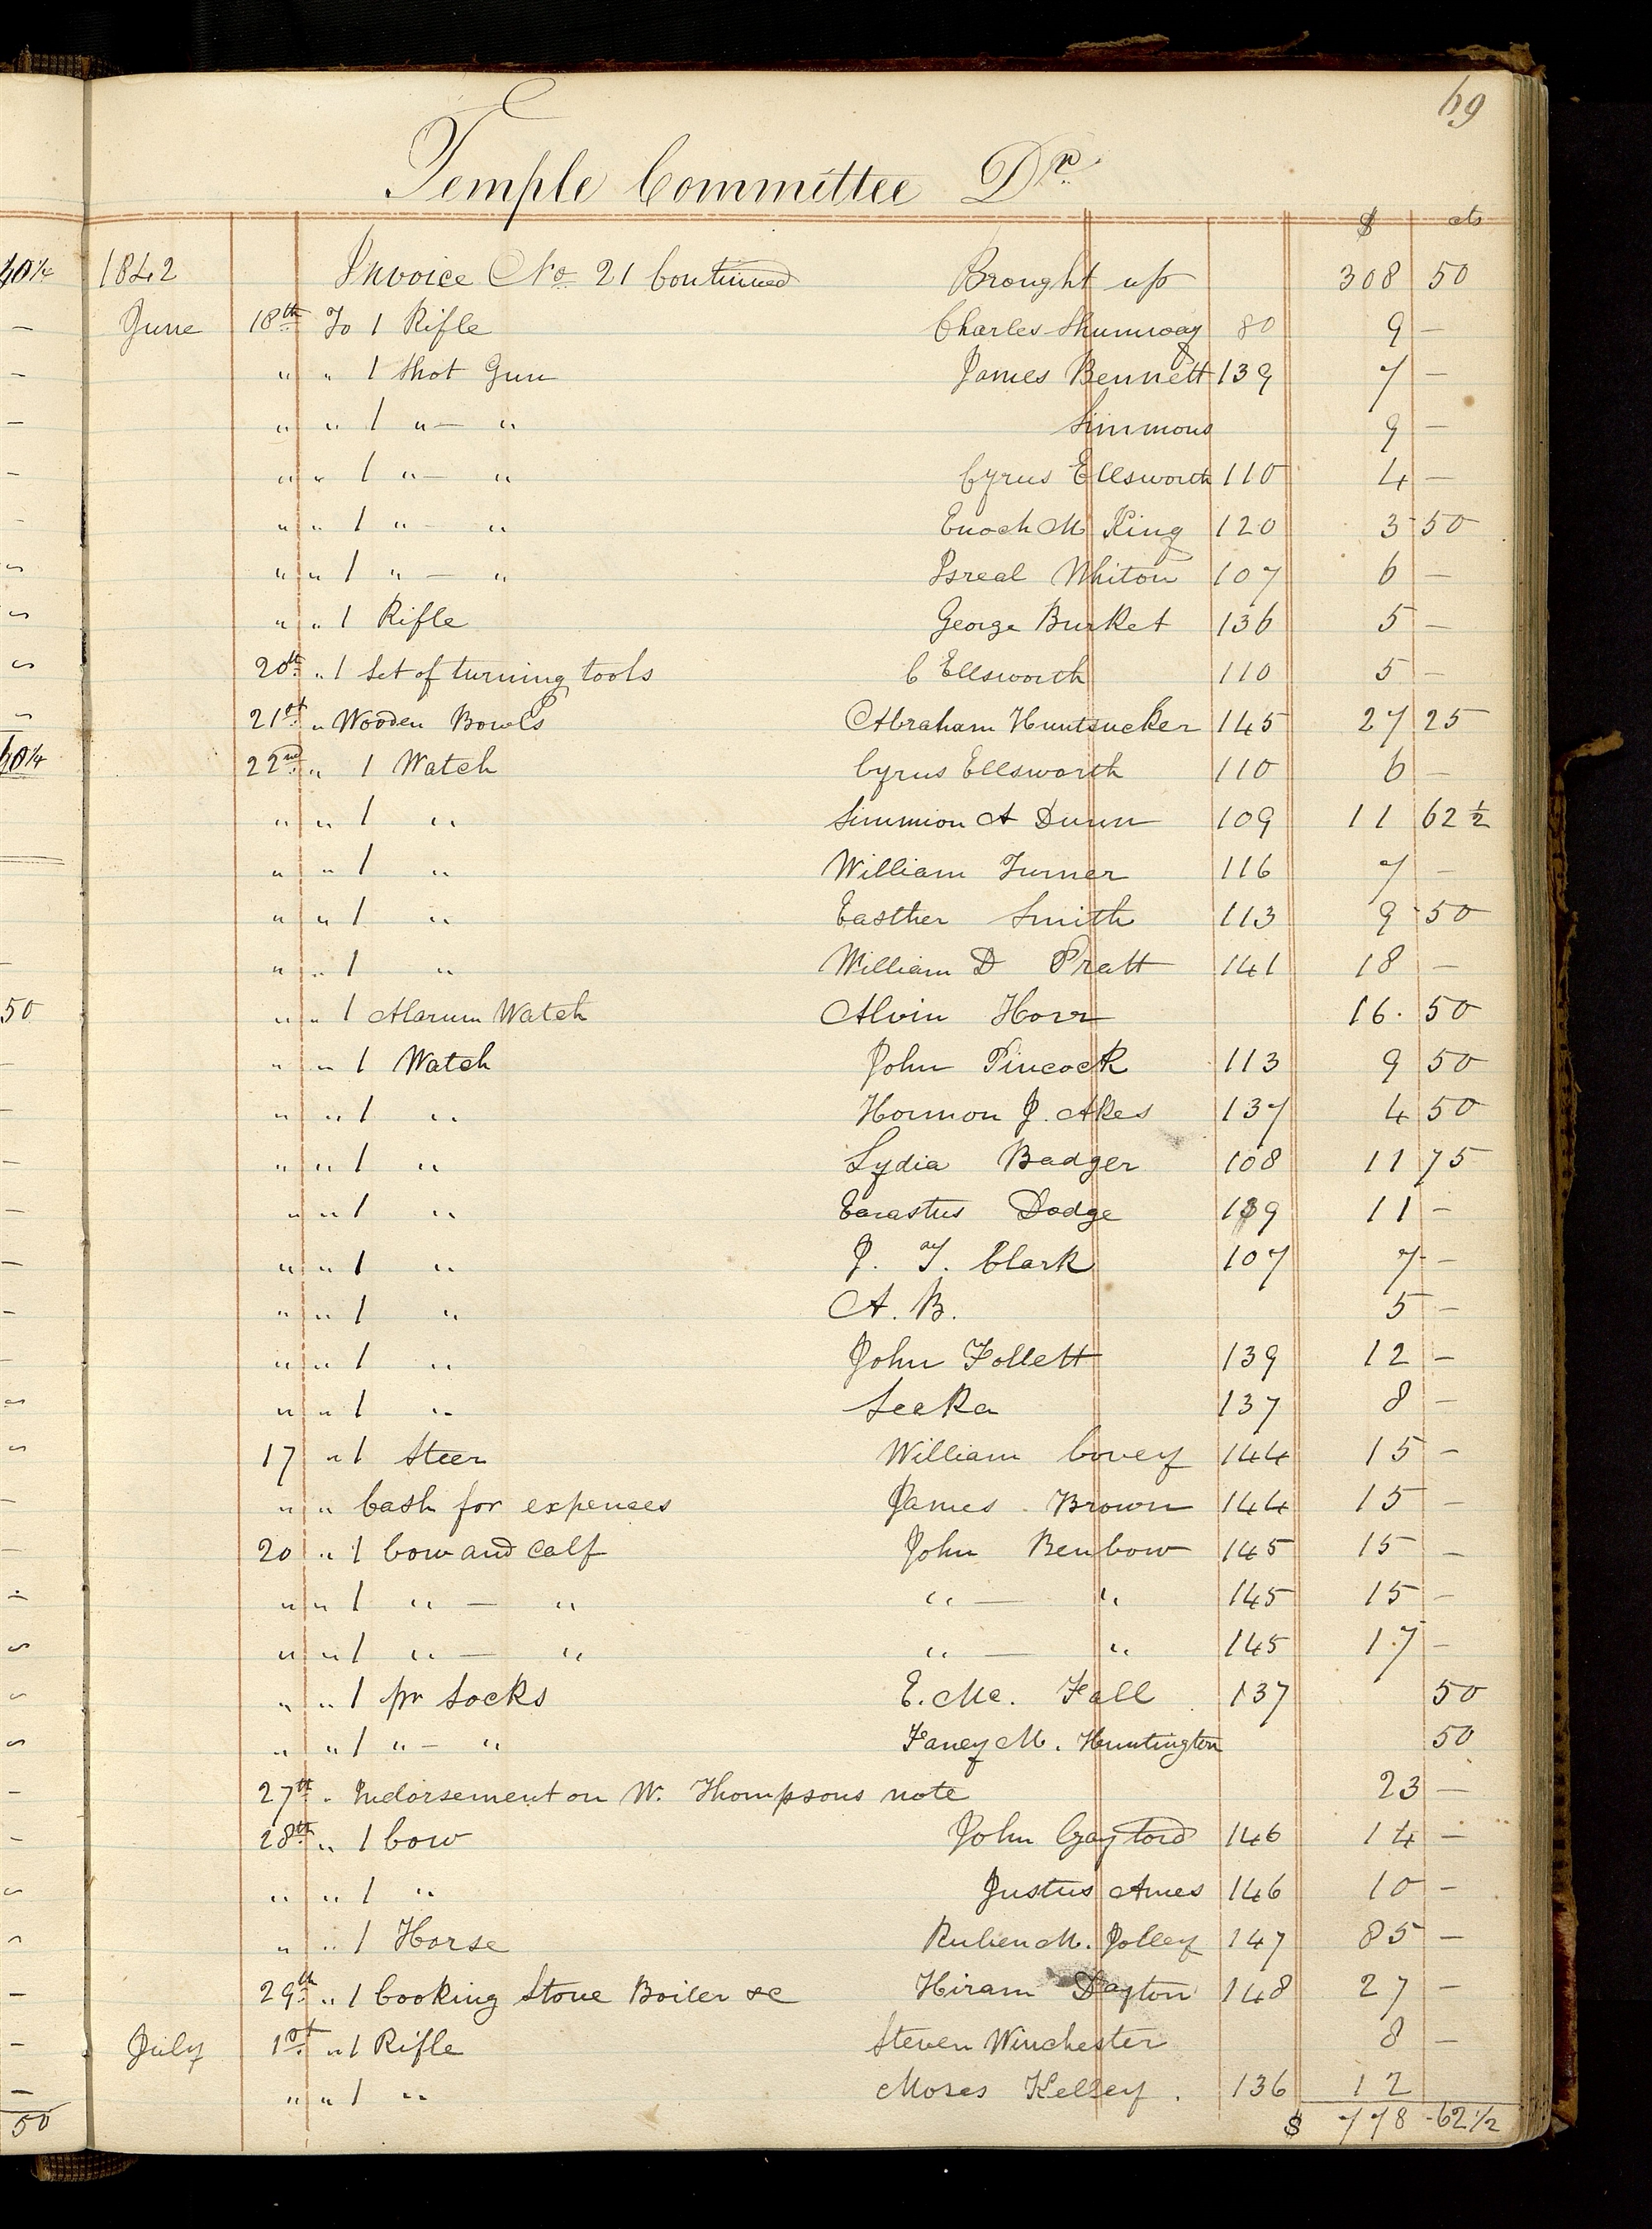 69
Temple Committee Dr.
$ cts
1842 Invoice No 21 Continued Brought up 308 50
June 18th To 1 Rifle Charles Shumway 80 9 –
" " 1 Shot Gun James Bennett 139 7 –
" " 1 " – " Simmons 9 –
" " 1 " – " Cyrus Ellsworth 110 4 –
" " 1 " – " Enoch M King 120 3 50
" " 1 " – " Isreal Whiton 107 6 –
" " 1 Rifle George Burket 136 5 –
20th " 1 Set of turning tools C Ellsworth 110 5 –
21st " Wooden Bowls Abraham Huntsucker 145 27 25
22nd " 1 Watch Cyrus Ellsworth 110 6 –
" " 1 " Simmion A Dunn 109 11 62 1/2
" " 1 " William Turner 116 7 –
" " 1 " Easther Smith 113 9 50
" " 1 " William D Pratt 141 18 –
" " 1 Alarum Watch Alvin Horr 16. 50
" " 1 Watch John Pincock 113 9 50
" " 1 " Hormon J. Akes 137 4 50
" " 1 " Lydia Badger 108 11 75
" " 1 " Earastus Dodge 139 11 –
" " 1 " J. T. Clark 107 7 –
" " 1 " A. B. 5 –
" " 1 " John Follett 139 12 –
" " 1 " Seeka 137 8 –
17 " 1 Steer William Covey 144 15 –
" " Cash for expences James Brown 144 15 –
20 " 1 Cow and Calf John Benbow 145 15 –
" " 1 " – " " – " 145 15 –
" " 1 " – " " – " 145 17 –
" " 1 pr Socks E. Mc. Fall 137 50
" " 1 " – " Faney M. Huntington 50
27th " Indorsement on W. Thompsons note 23 –
28th " 1 Cow John Gaylord 146 14 –
" " 1 " Justus Ames 146 10 –
" " 1 Horse Rubien M. Jolley 147 85 –
29th " 1 Cooking Stove Boiler &c Hiram Dayton 148 27 –
July 1st " 1 Rifle Steven Winchester 8 –
" " 1 " Moses Kelsey. 136 12
$ 778 62 1/2